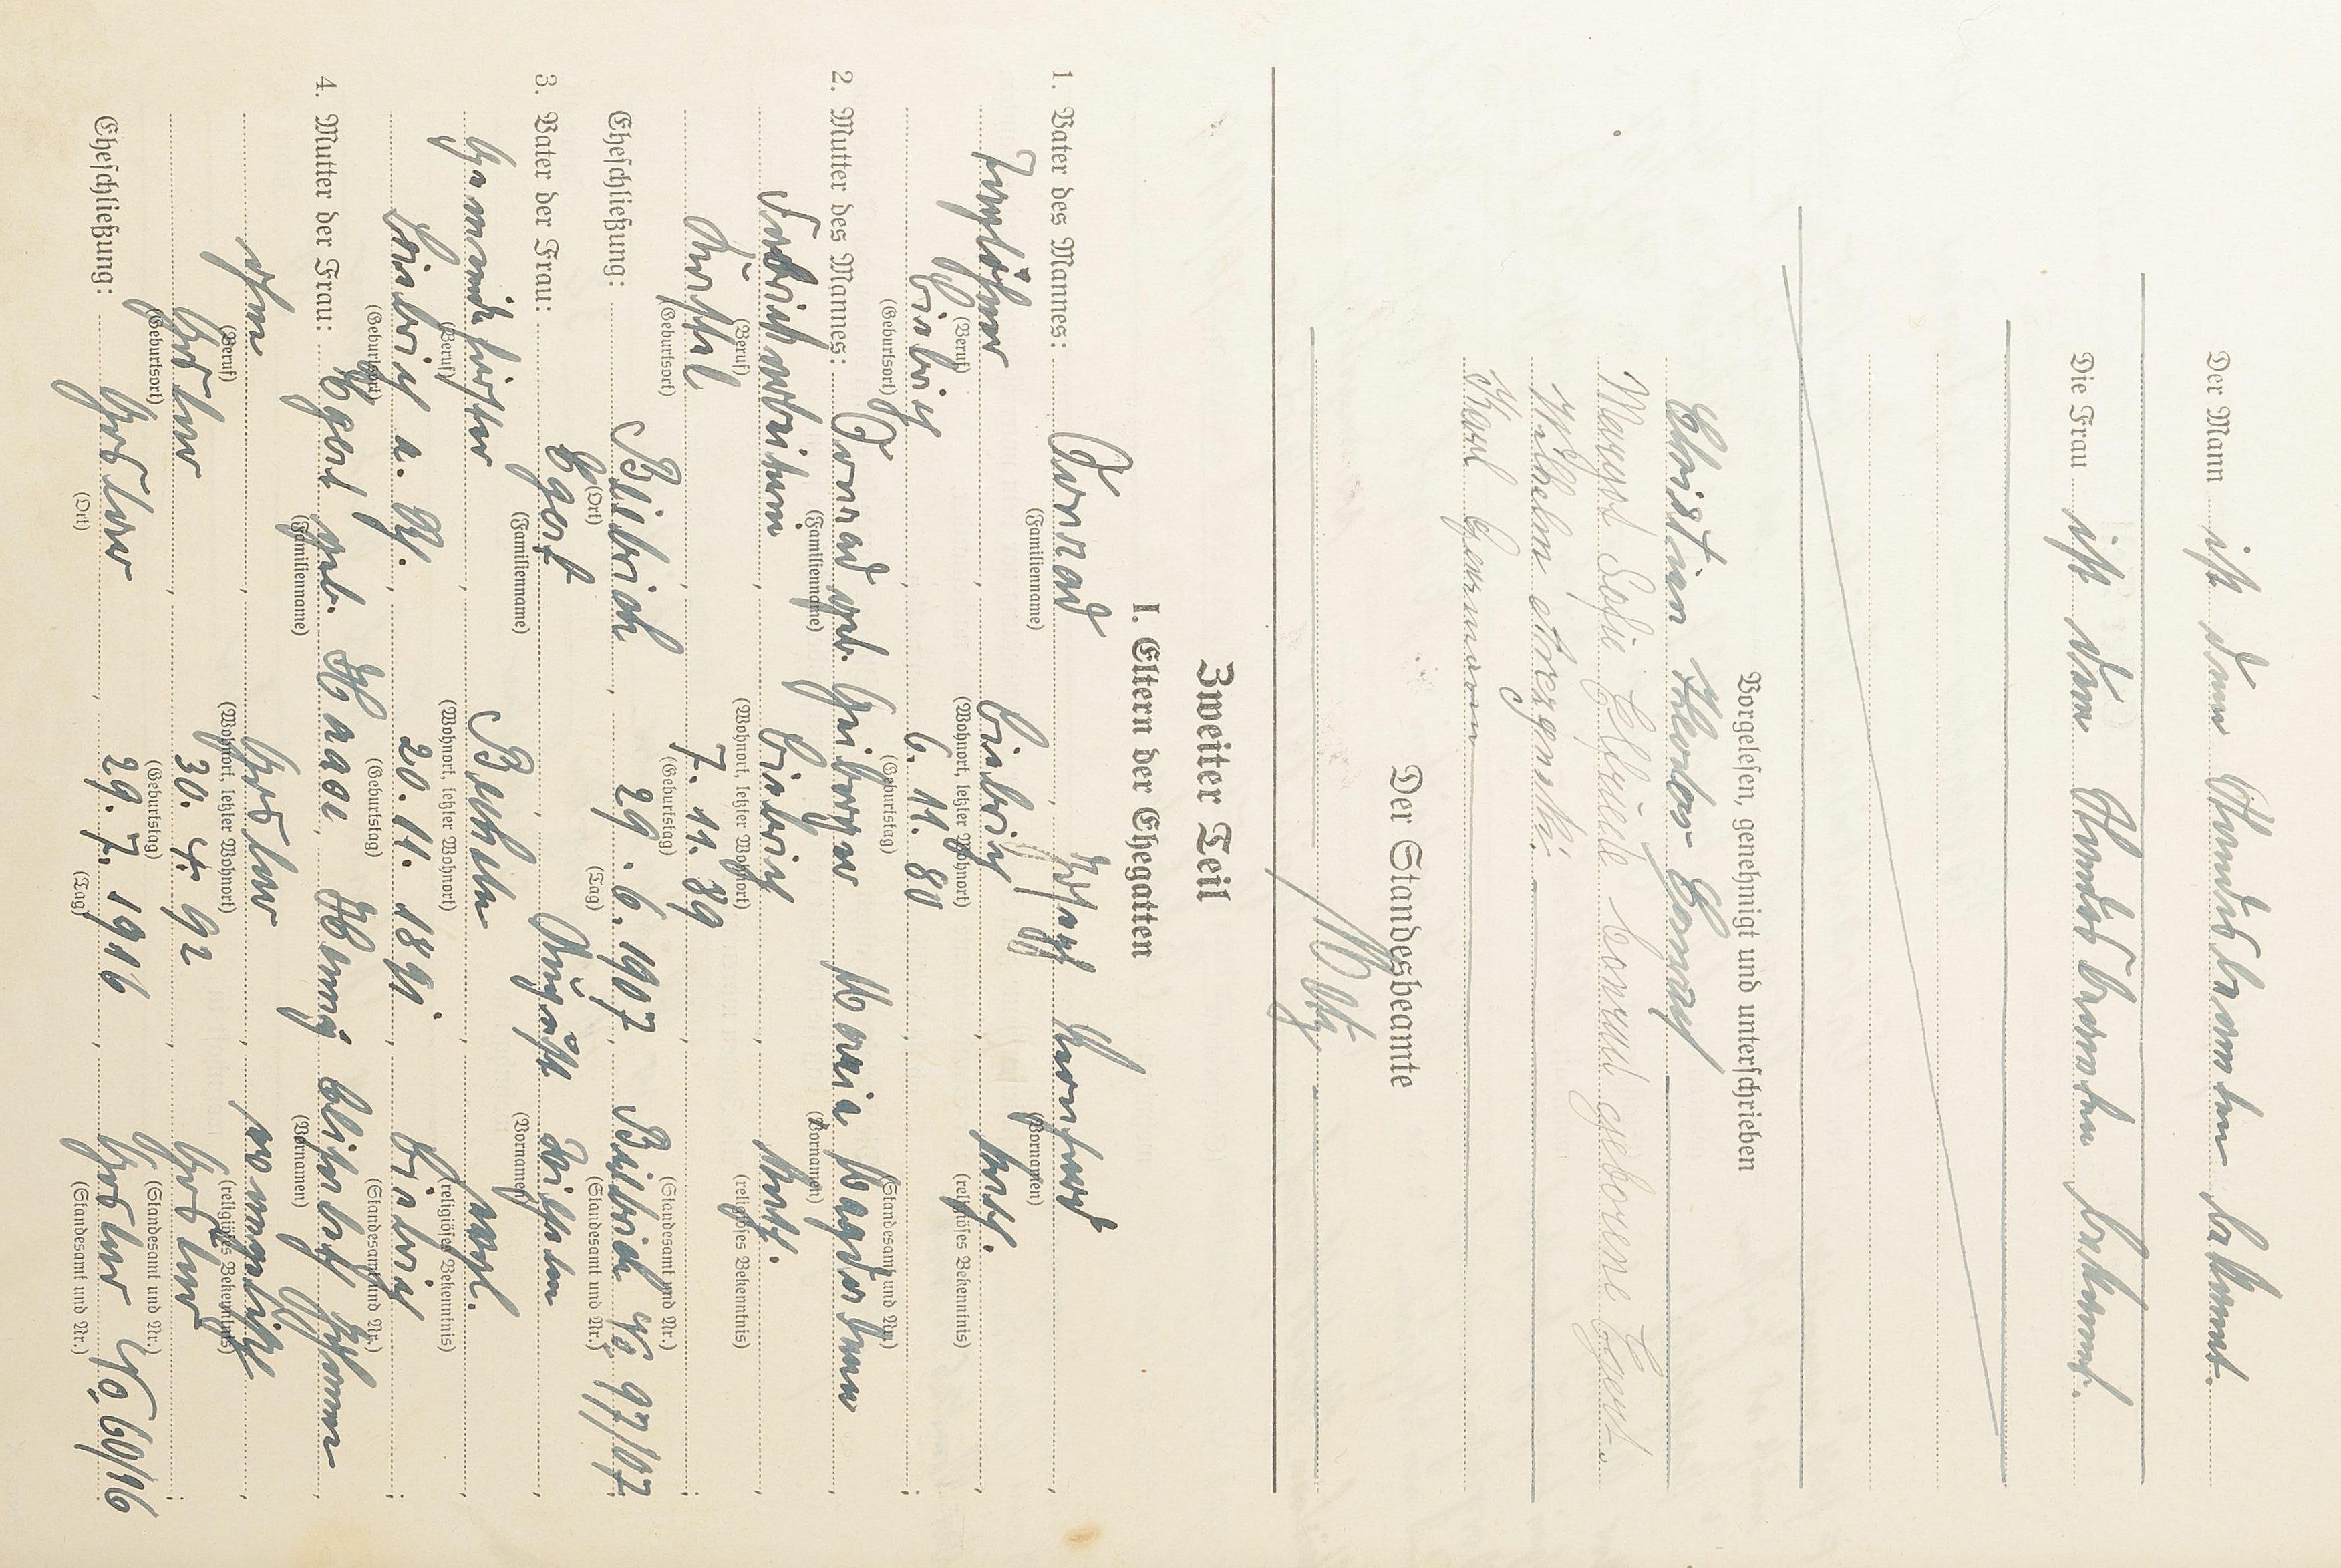 Der Mann ist dem Standesbeamten bekannt.
Die Frau ist dem Standesbeamten bekannt.
Vorgelesen, genehmigt und unterschrieben
Christian Theodor Conrad
Margot Sofie Elfriede Conrad geborene Egert.
Wilhelm
Karl Germann
Der Standesbeamte
Zweiter Teil
I. Eltern der Ehegatten
1. Vater des Mannes: Conrad, Josef Konrad,
(Familienname) (Vornamen)
Taglöhner, Biebrich, kath.
(Beruf) (Wohnort, letzter Wohnort) (religiöses Bekenntnis)
Biebrich, 6. 11. 80,
(Geburtsort) (Geburtstag) (Standesamt und Nr.)
2. Mutter des Mannes: Conrad geb. Maria Magdalena
(Familienname) (Vornamen)
Fabrikarbeiterin, Biebrich, kath.
(Beruf) (Wohnort, letzter Wohnort) (religiöses Bekenntnis)
7. 11. 89
(Geburtsort) (Geburtstag) (Standesamt und Nr.)
Eheschließung: Biebrich, 29. 6. 1907, Biebrich No 97/07
(Ort) (Tag) (Standesamt und Nr.)
3. Vater der Frau: Egert, August
(Familienname) (Vornamen)
evgl.
(Beruf) (Wohnort, letzter Wohnort) (religiöses Bekenntnis)
Biebrich a. Rh., 20. 11. 1891, Biebrich
(Geburtsort) (Geburtstag) (Standesamt und Nr.)
4. Mutter der Frau: Egert geb. Haas, Elisabeth
(Familienname) (Vornamen)
ohne, Goslar, evangelisch
(Beruf) (Wohnort, letzter Wohnort) (religiöses Bekenntnis)
Goslar, 30. 4. 92, Goslar
(Geburtsort) (Geburtstag) (Standesamt und Nr.)
Eheschließung: Goslar, 29. 7. 1916, Goslar No. 60/16
(Ort) (Tag) (Standesamt und Nr.)